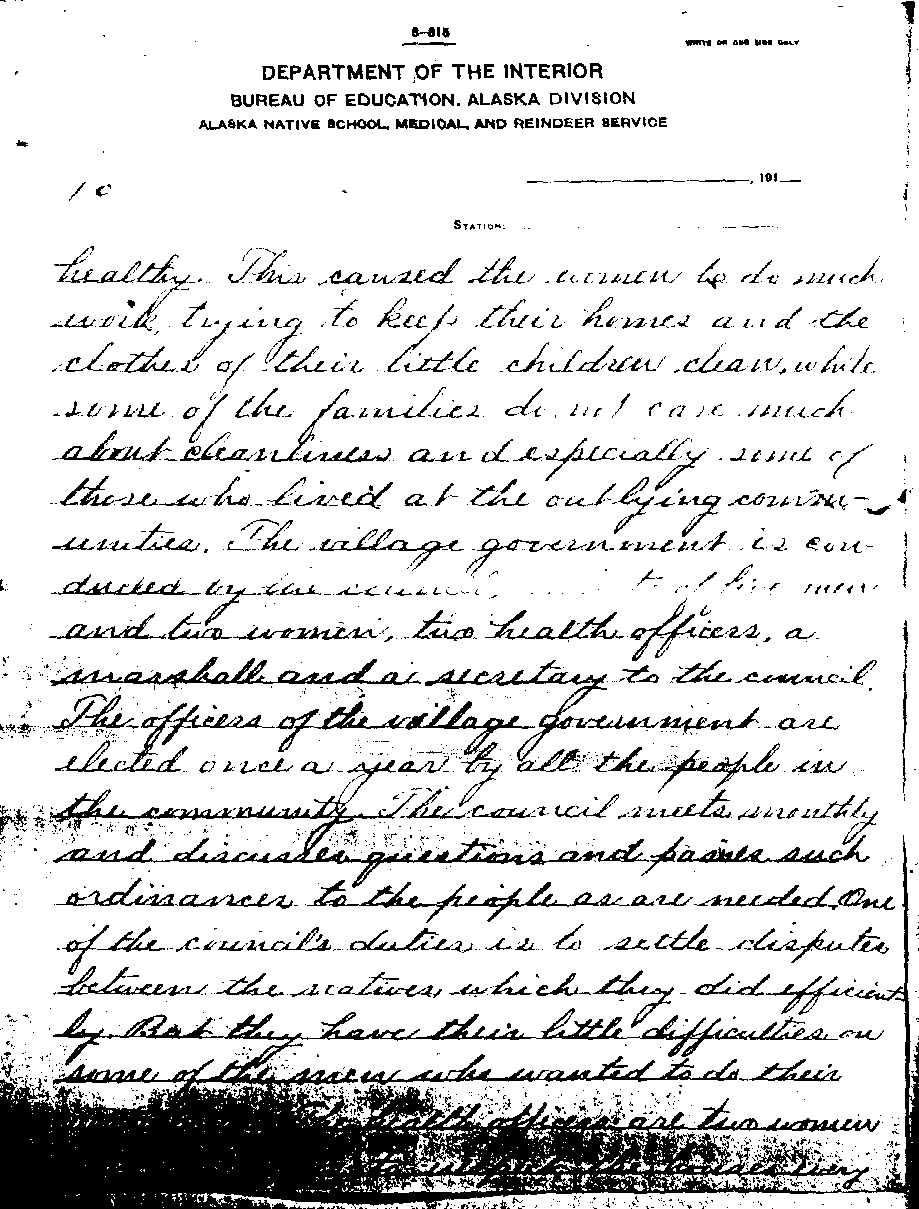 6-615
WRITE ON ONE SIDE ONLY
DEPARTMENT OF THE INTERIOR
BUREAU OF EDUCATION, ALASKA DIVISION
ALASKA NATIVE SCHOOL, MEDICAL, AND REINDEER SERVICE
, 191
10
STATION:
healthy. This caused the women to do much
work, trying to keep their homes and the
clothes of their little children clean, while
some of the families do not care much
about cleanliness and especially some of
those who lived at the outlying commu-
unities. The village government is con-
ducted by the council, of five men
and two women, two health officers, a
marshall and a secretary to the council.
The officers of the village government are
elected once a year by all the people in
the community. The council meets monthly
and discusses questions and passes such
ordinances to the people as are needed. One
of the council's duties is to settle disputes
between the natives, which they did efficient-
ly. But they have their little difficulties on
some of the men who wanted to do their
The health officers are two women
to inspect the houses every